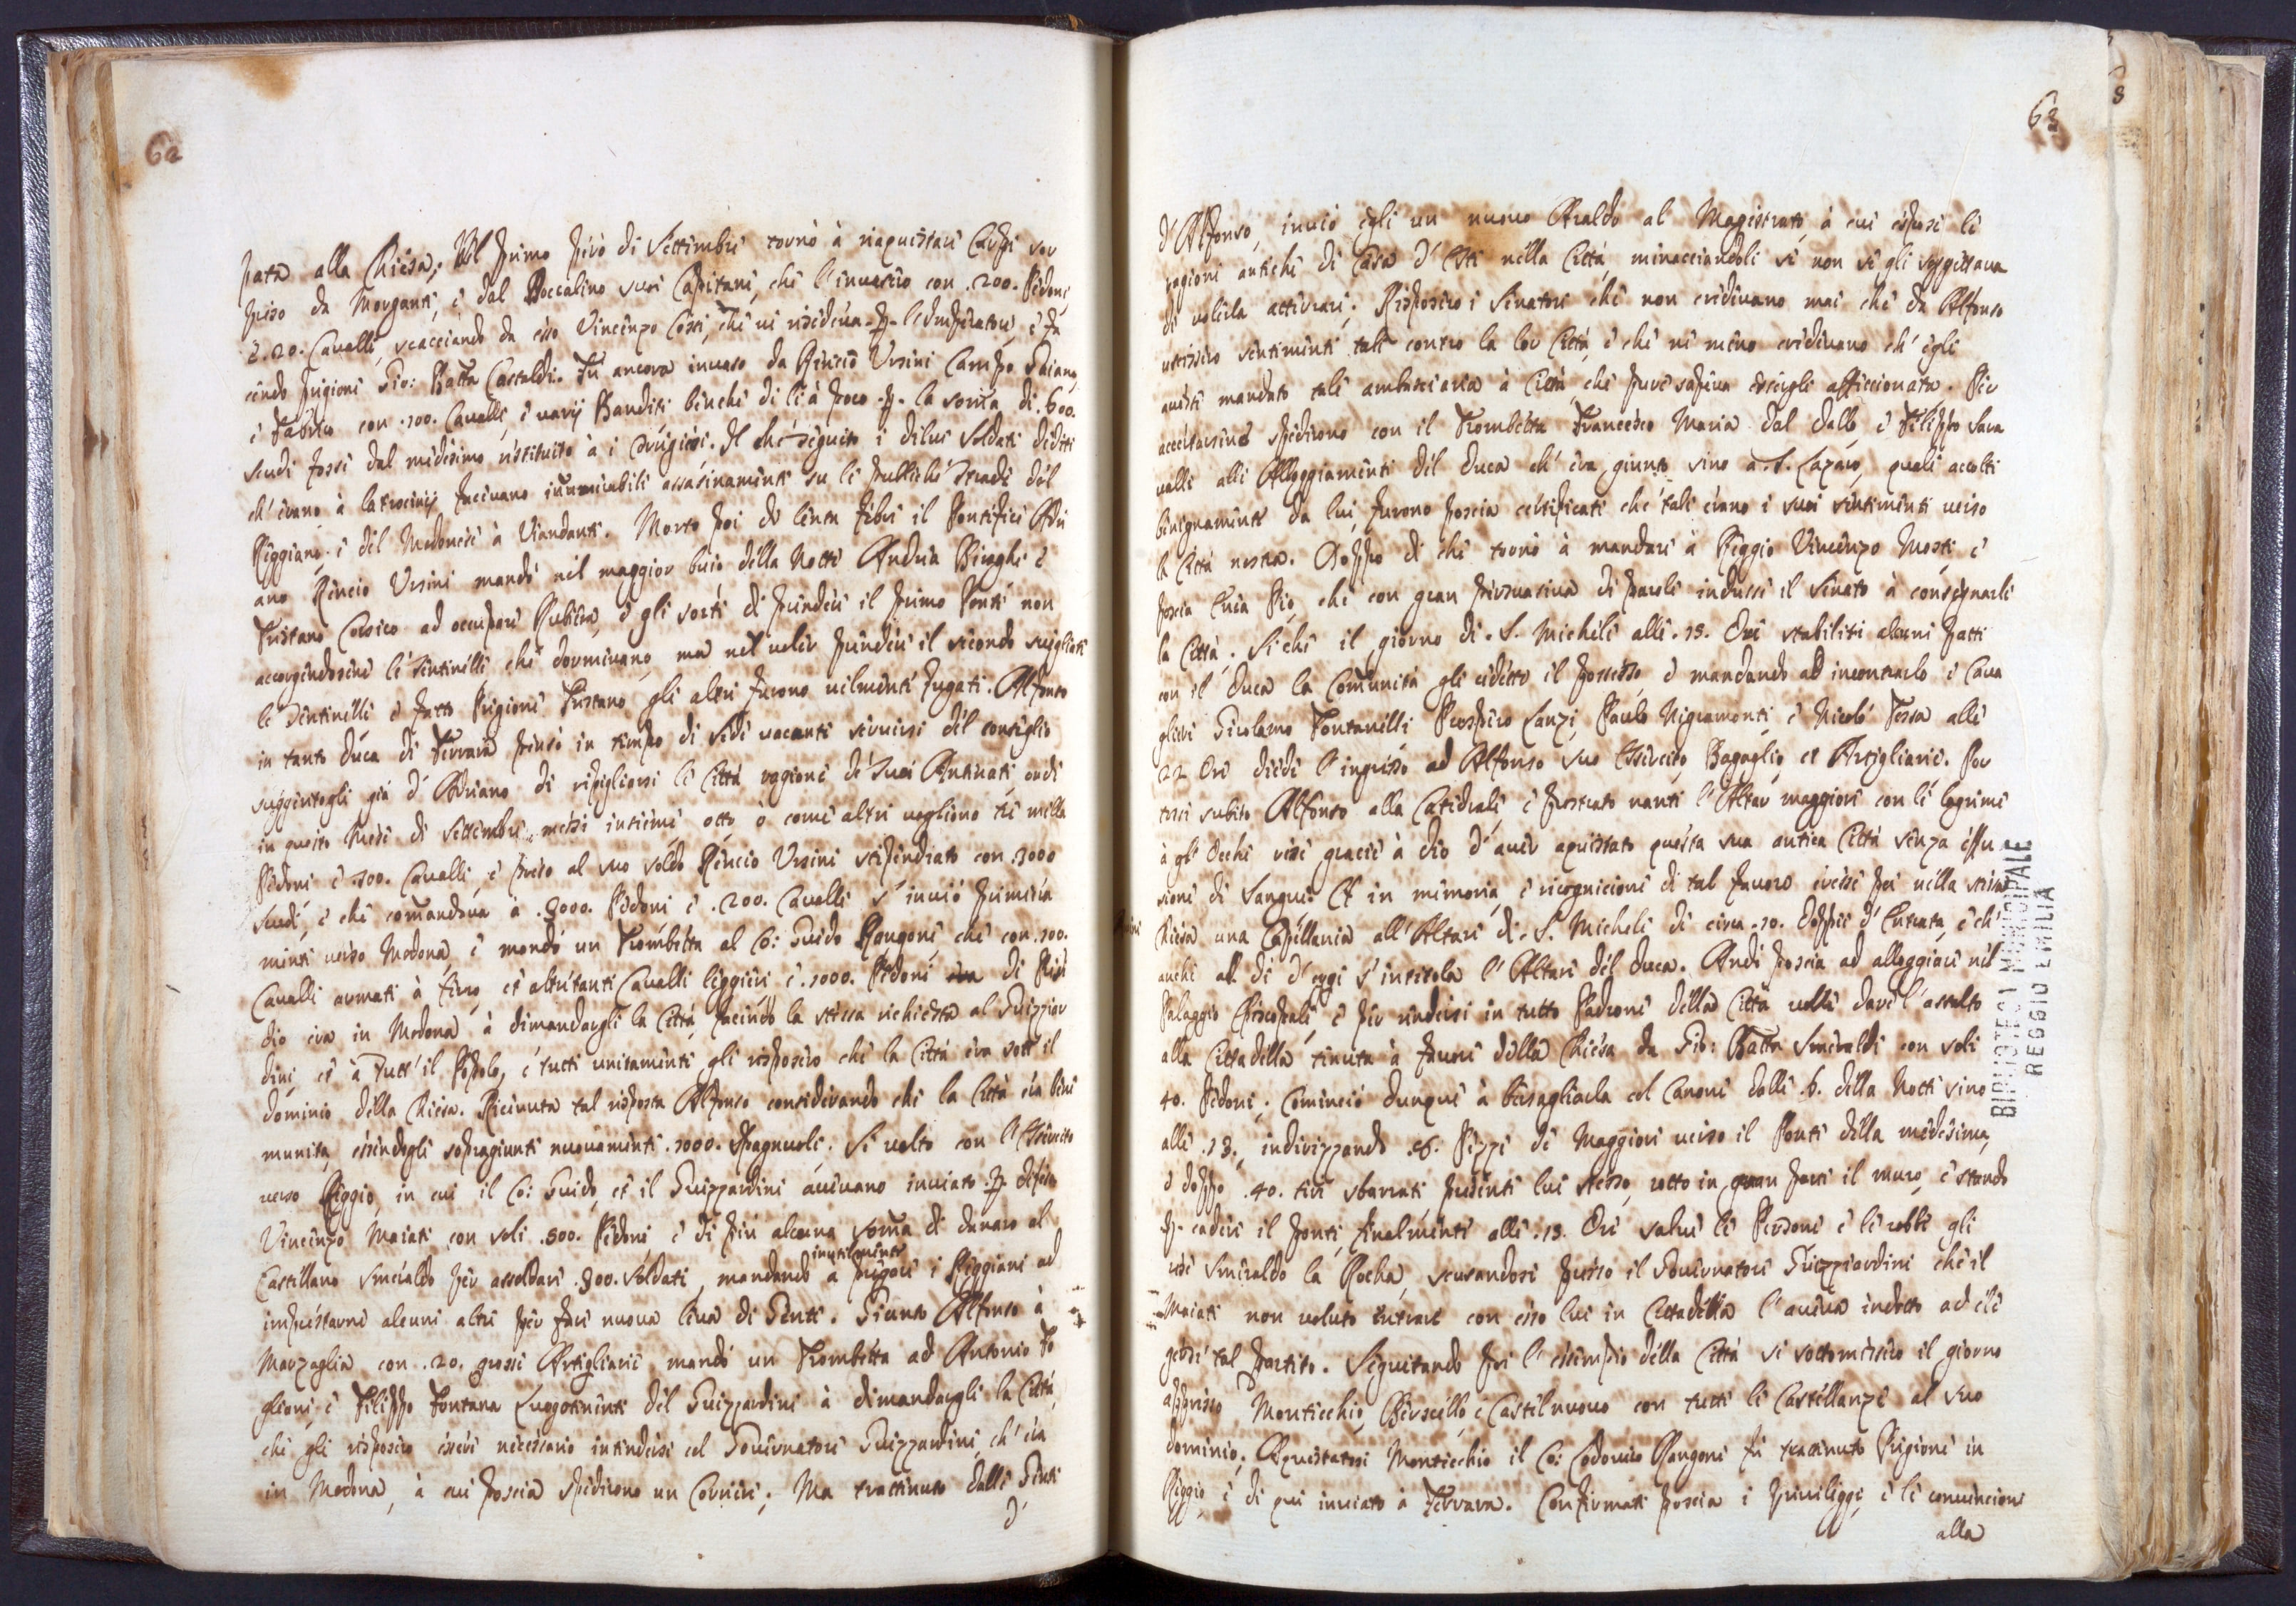 62
pata alla Chiesa; Nel primo però di Settembre tornò à riaquistare Carpi sor
preso da Morganti, e dal Boccalino suoi Capitani, che l'invasero con .200. Pedoni
e .20. Cavalli, scacciando da esso Vincenzo Costi, che vi risiedeva p l'Imperatore, e fa
cendo prigione Gio: Batta Castaldi. Fù ancora invaso da Rencio Ursini Campo Gaiano,
e Fabrico con .100. Cavalli, e varij Banditi benche di lì à poco p la soma di .600.
scudi fosse dal medesimo restituito à i Coregiesi. Il che seguito i dilui Soldati dediti
ch'erano à latrocinij facevano inumerabili assasinamenti su le publiche strade del
Reggiano e del Modonese à Viandanti. Morto poi di lenta febre il Pontefice Adri
ano Rencio Ursini mandò nel maggior buio della Notte Andrea Biraghi e
Tristano Corsico ad occupare Rubiera, e gli sortì di prendere il primo Ponte non
accorgendosene le Sentinelle che dormivano, ma nel voler prendere il secondo svegliate
le Sentinelle e fatto Prigione Tristano gli altri furono vilmente fugati. Alfonso
in tanto Duca di Ferrara pensò in tempo di sede vacante servirsi del consiglio
suggeritogli già d'Adriano di ripigliarsi le Città ragione de' suoi Antenati, onde
in questo Mese di Settembre messi insieme otto, ò come altri vogliono tre milla
Pedoni e .300. Cavalli, e preso al suo soldo Rencio Ursini stipendiato con .3000
Scudi, e che comandava à .3000. Pedoni e .200. Cavalli s'inviò primiera
mente verso Modona, e mandò un Trombetta al Co: Guido Rangone, che con .100.
Cavalli armati à ferro, et altretanti Cavalli leggieri e .1000. Pedoni di Presi
dio era in Modona à dimandargli la Città facendo la stessa richiesta al Guizziar
dini, et à tutt'il Popolo, e tutti unitamente gli risposero che la Città era sott'il
dominio della Chiesa. Ricevuta tal risposta Alfonso considerando che la Città era bene
munita, essendogli sopragiunti nuovamente .1000. Spagnuoli. Si voltò con l'Essercito
verso Reggio, in cui il Co: Guido, et il Guizzardini avevano inviato p difesa
Vincenzo Maiati con soli .500. Pedoni, e di più alcuna soma di danaro al
Castellano Smeraldo per assoldare .300. soldati, mandando inutilmente à pregare i Reggiani ad
imprestarne alcuni altri per fare nuova leva di Gente. Giunto Alfonso à
Marzaglia con .20. grosse Artigliarie mandò un Trombetta ad Antonio Fo
glioni, e Filippo Fontana Luogotenenti del Guizzardini à dimandargli la Città,
che gli risposero essere necessario intendersi col Governatore Guizzardini, ch'era
in Modona, à cui poscia spedirono un Corriere; Ma trattenuto dalle Genti
d'
63
d'Alfonso, inviò egli un nuovo Araldo al Magistrato, à cui espose le
ragioni antiche di Casa d'Este nella Città minacciandoli se non se gli soggettava
di volerla atterrare; Risposero i Senatori che non credevano mai che da Alfonso
uscissero sentimenti tali contro la lor Città, e che ne meno credevano ch'egli
avesse mandato tale ambasciaria à Città, che pure sapeva essergli affecionata. Per
accertarsene spedirono con il Trombetta Francesco Maria dal Dallo, e Filippo Sara
valli alli Alloggiamenti del Duca ch'era giunto sino à S. Lazaro, quali accolti
benignamente da lui, furono poscia certificati che tali erano i suoi sentimenti verso
la Città nostra. Doppo di che tornò à mandare à Reggio Vincenzo Mosti, e
poscia Enea Pio, che con gran persuasiva di parole indusse il Senato à consegnarli
la Città; Si che il giorno di S. Michele alle .15. Ore stabiliti alcuni patti
con il Duca la Comunità gli cedette il possesso, e mandando ad incontrarlo i Cava
glieri Girolamo Fontanelli, Prospero Lanzi, Paulo Nigramonti, e Nicolò Tossa alle
22 Ore diede l'ingresso ad Alfonso suo Essercito, Bagaglio, et Artigliarie. Por
tossi subito Alfonso alla Catedrale, e prostrato nanti l'Altar maggiore con le lagrime
à gl'Occhi rese gracie à Dio d'aver aquistato questa sua antica Città senza effu
sione di Sangue. Et in memoria, e ricognicione di tal favore eresse poi nella stessa
Chiesa una Capellania all'Altare di S. Michele di circa .10. Doppie d'Entrata, e ch'
anche al dì d'oggi s'intitola l'Altare del Duca. Andò poscia ad alloggiare nel
Palaggio Episcopale, e per rendersi in tutto Padrone della Città volle dare l'assalto
alla Cittadella tenuta à favore della Chiesa da Gio: Batta Smeraldi con soli
40. Pedoni; Cominciò dunque à bersagliarla col Canone dalle .6. della Notte sino
alle .13., indirizzando .6. Pezzi de Maggiori verso il Ponte della medesima,
e doppo .40. tiri sbarrati presente lui stesso, rotto in gran parte il muro, e stando
p cadere il ponte, finalmente alle .15. Ore salve le Persone e le robbe gli
rese Smeraldo la Rocha, scusandosi presso il Governatore Guizziardini che il
Maiati non voluto entrare con esso lui in Cittadella l'aveva indotto ad ele
gersi tal partito. Seguitando poi l'essempio della Città si sottomessero il giorno
appresso Montecchio, Berscello, e Castelnuovo con tutte le Castellanze al suo
dominio; Aquistatosi Montecchio il Co: Lodovico Rangone fù trattenuto Prigione in
Reggio, e di qui inviato à Ferrara. Confirmati poscia i privileggi, e le convencioni
alla
BIBLIOTECA MUNICIPALE
REGGIO EMILIA